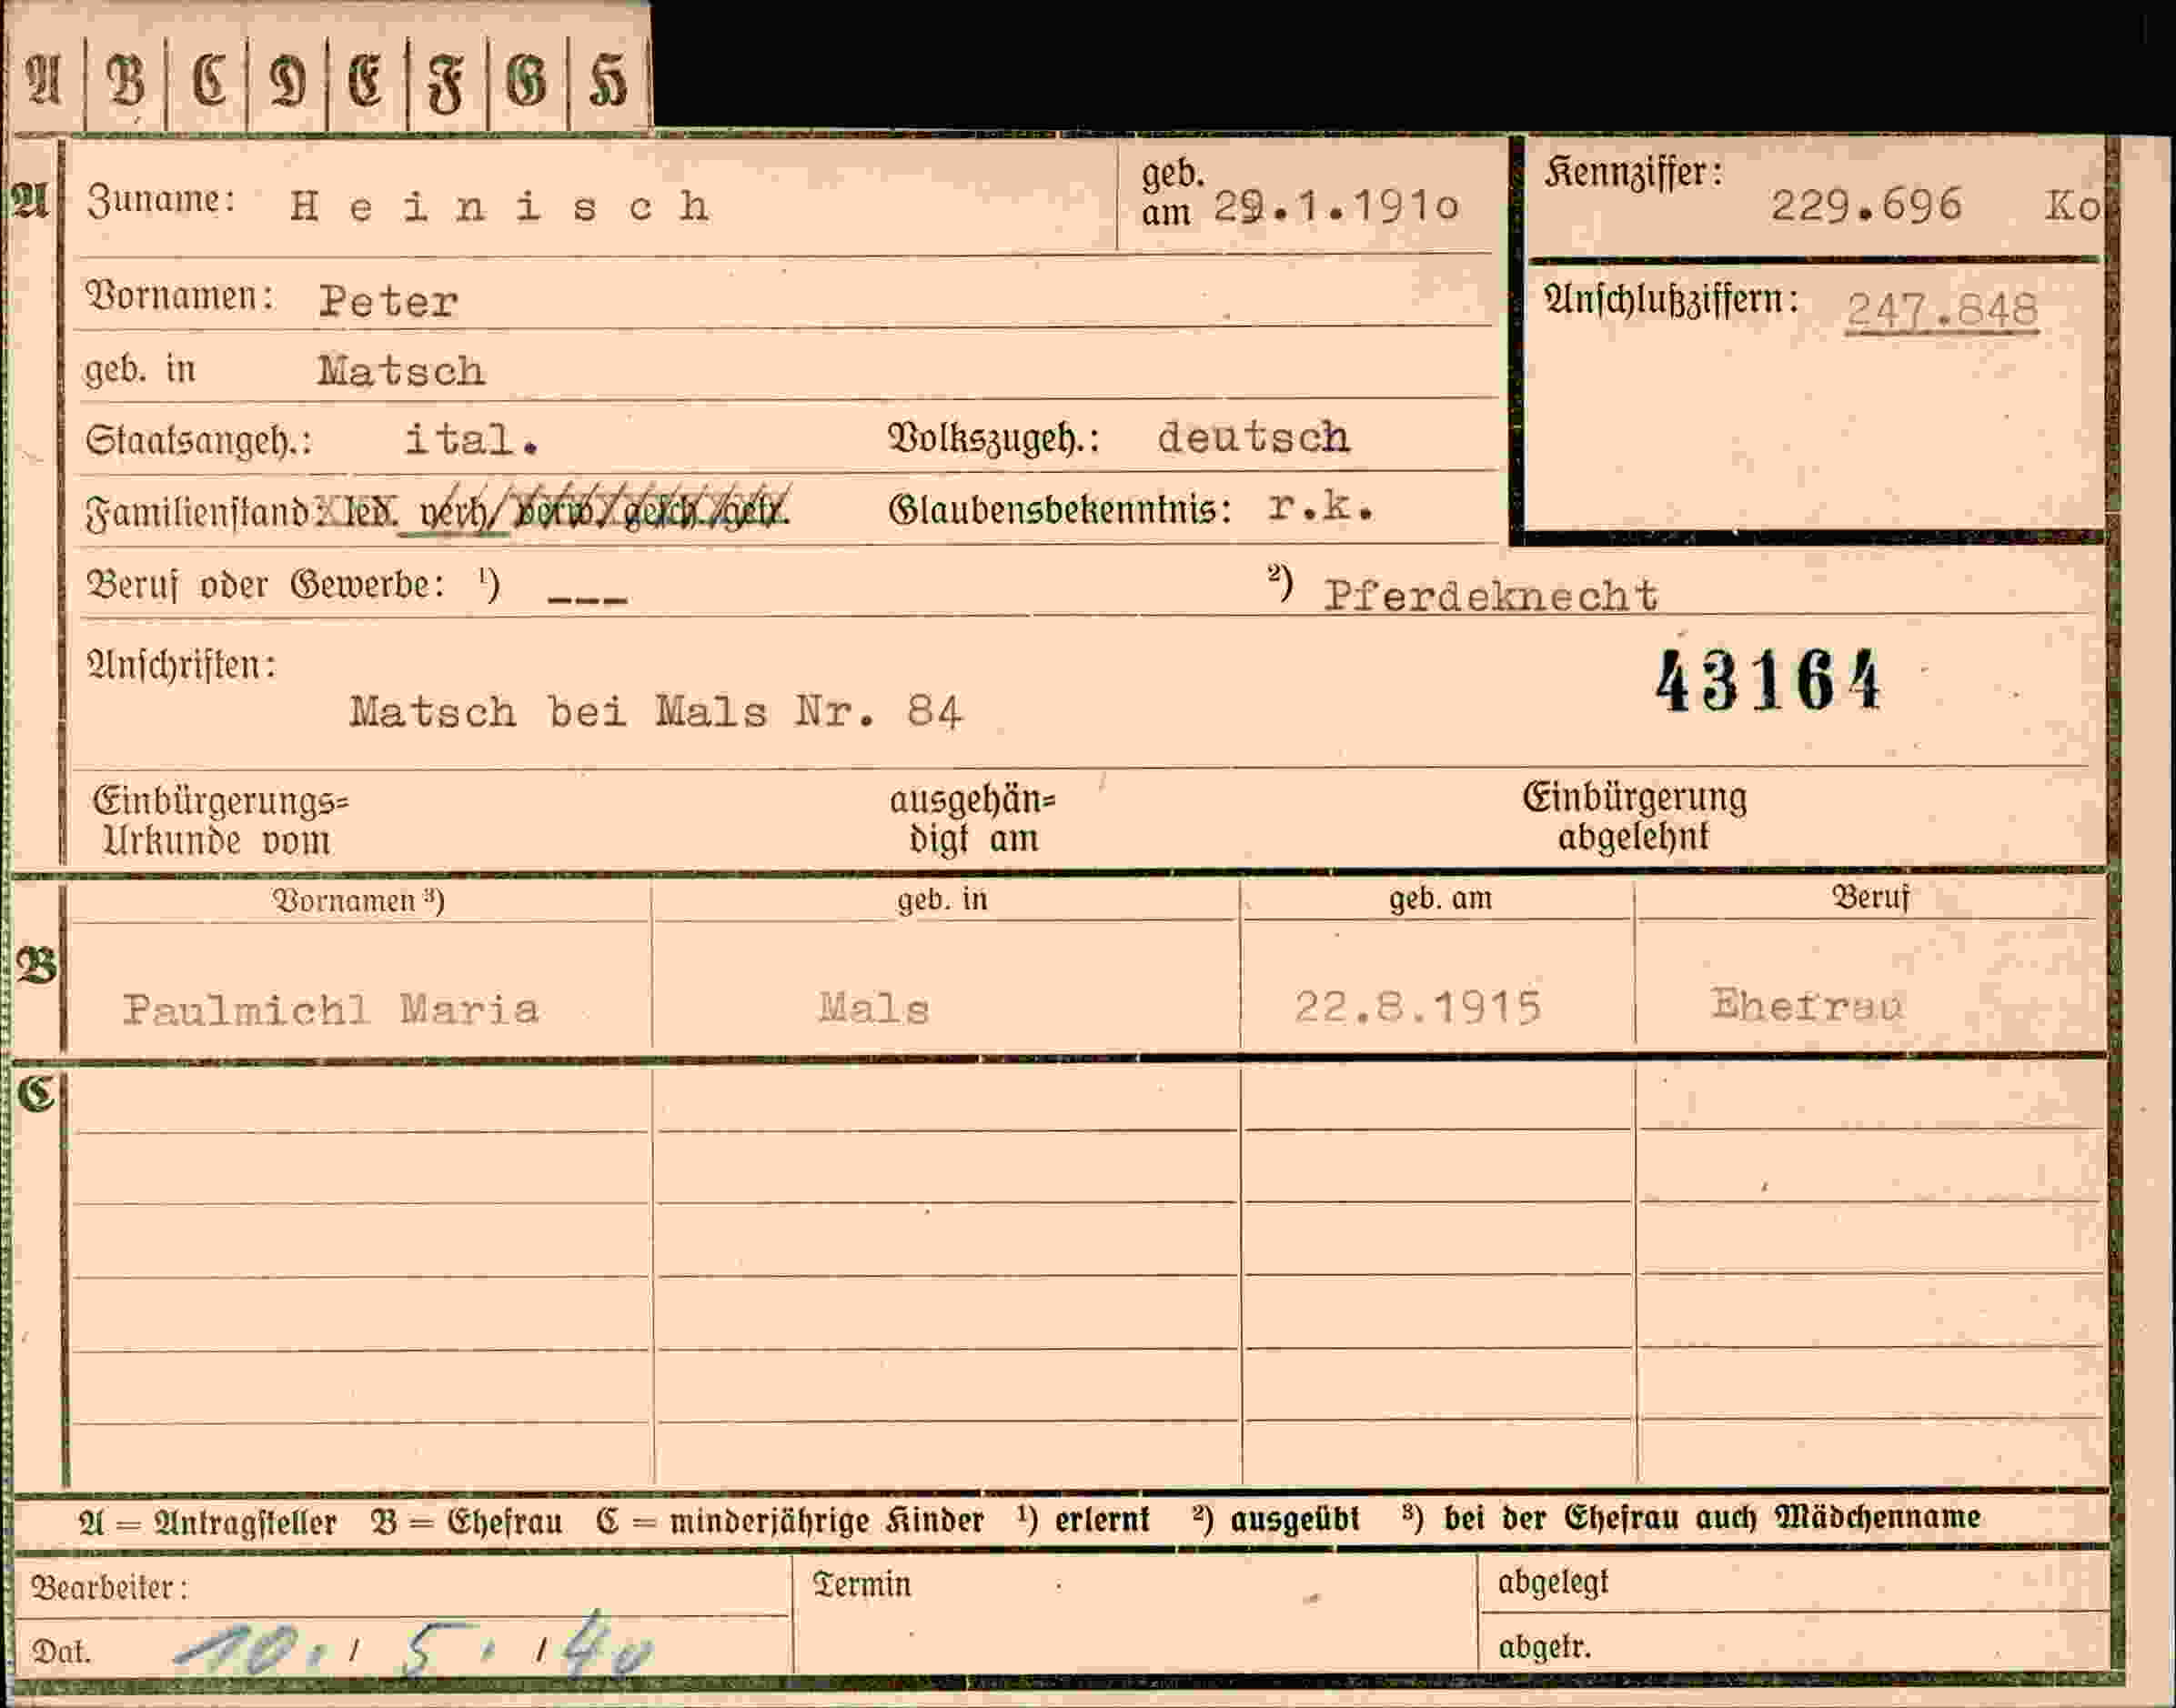 A B C D E F G H
A Zuname: Heinisch geb. am 29.1.1910 Kennziffer: 229.696 Ko
Vornamen: Peter Anschlußziffern: 247.848
geb. in Matsch
Staatsangeh.: ital. Volkszugeh.: deutsch
Familienstand: led. verh/ verw./ gesch./getr. Glaubensbekenntnis: r.k.
Beruf oder Gewerbe: ¹) --- ²) Pferdeknecht
Anschriften: 43164
Matsch bei Mals Nr. 84
Einbürgerungs= ausgehän= Einbürgerung
Urkunde vom digt am abgelehnt
Vornamen ³) geb. in geb. am Beruf
B
Paulmichl Maria Mals 22.8.1915 Ehefrau
C
A = Antragsteller B = Ehefrau C = minderjährige Kinder ¹) erlernt ²) ausgeübt ³) bei der Ehefrau auch Mädchenname
Bearbeiter: Termin abgelegt
Dat. 10. / 5. / 40 abgetr.